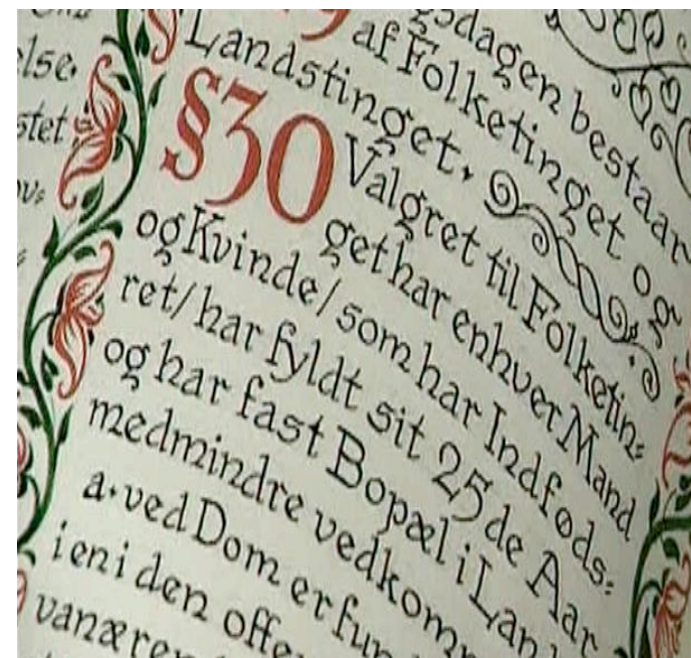 gsdagen bestaar
af Folketinget og
Landstinget.
§30 Valgret til Folketin:
get har enhver Mand
og Kvinde/som har Indføds:
ret/har fyldt sit 25de Aar
og har fast Bopæl i Lan
medmindre vedkomm
a.ved Dom er fun
i en i den offe
vanæren
lse.
stet